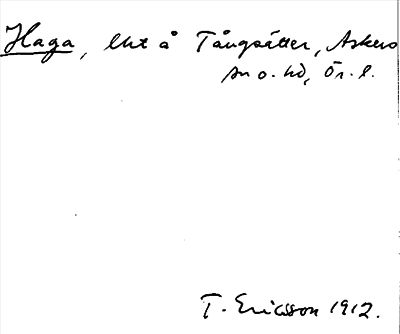 Haga, lht å Tångsätter, Askers
sn o. hd, Ör. l.
T. Ericsson 1912.